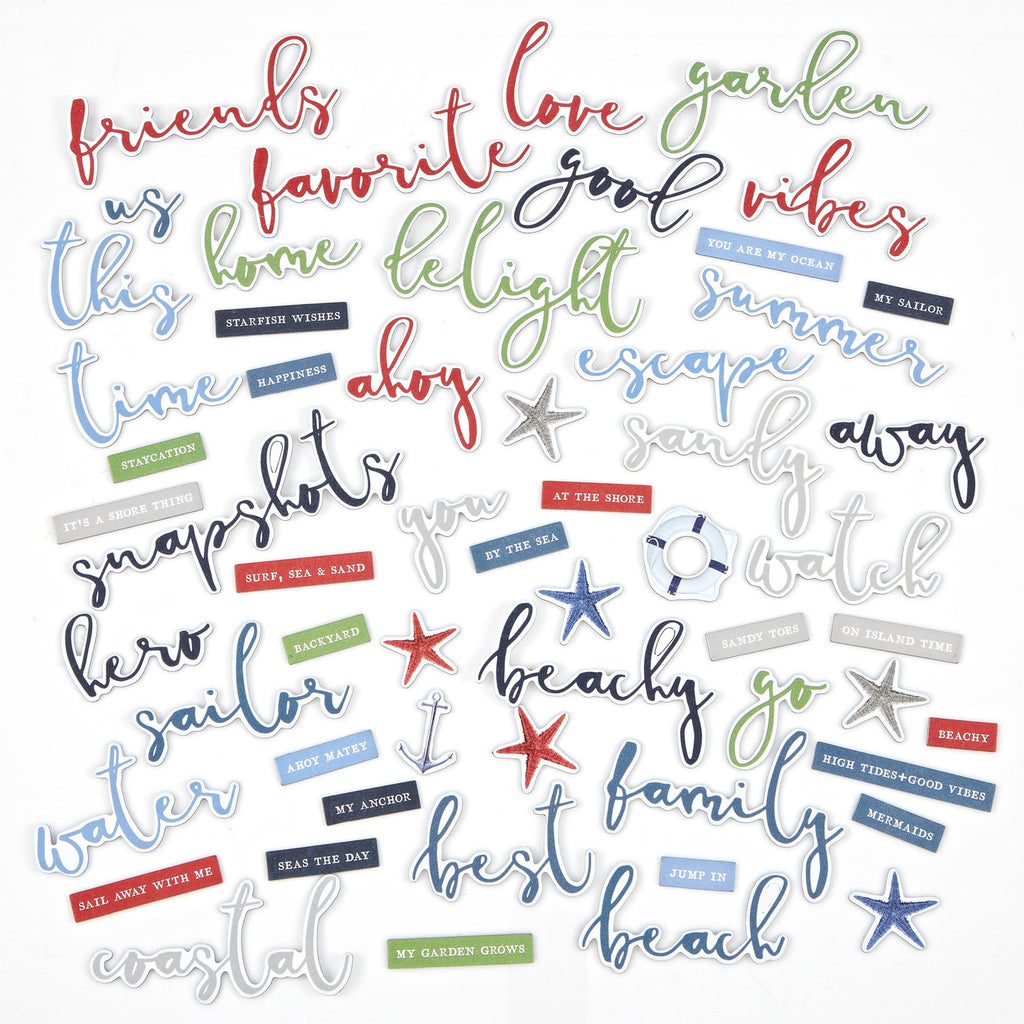 friends
love
garden
favorite
good
vibes
us
this
home
delight
YOU ARE MY OCEAN
MY SAILOR
STARFISH WISHES
summer
time
HAPPINESS
ahoy
escape
sandy
away
STAYCATION
snapshots
IT'S A SHORE THING
you
AT THE SHORE
BY THE SEA
watch
SURF, SEA & SAND
hero
BACKYARD
beachy
SANDY TOES
ON ISLAND TIME
sailor
go
BEACHY
AHOY MATEY
HIGH TIDES+GOOD VIBES
water
MY ANCHOR
family
MERMAIDS
best
SEAS THE DAY
SAIL AWAY WITH ME
JUMP IN
beach
coastal
MY GARDEN GROWS